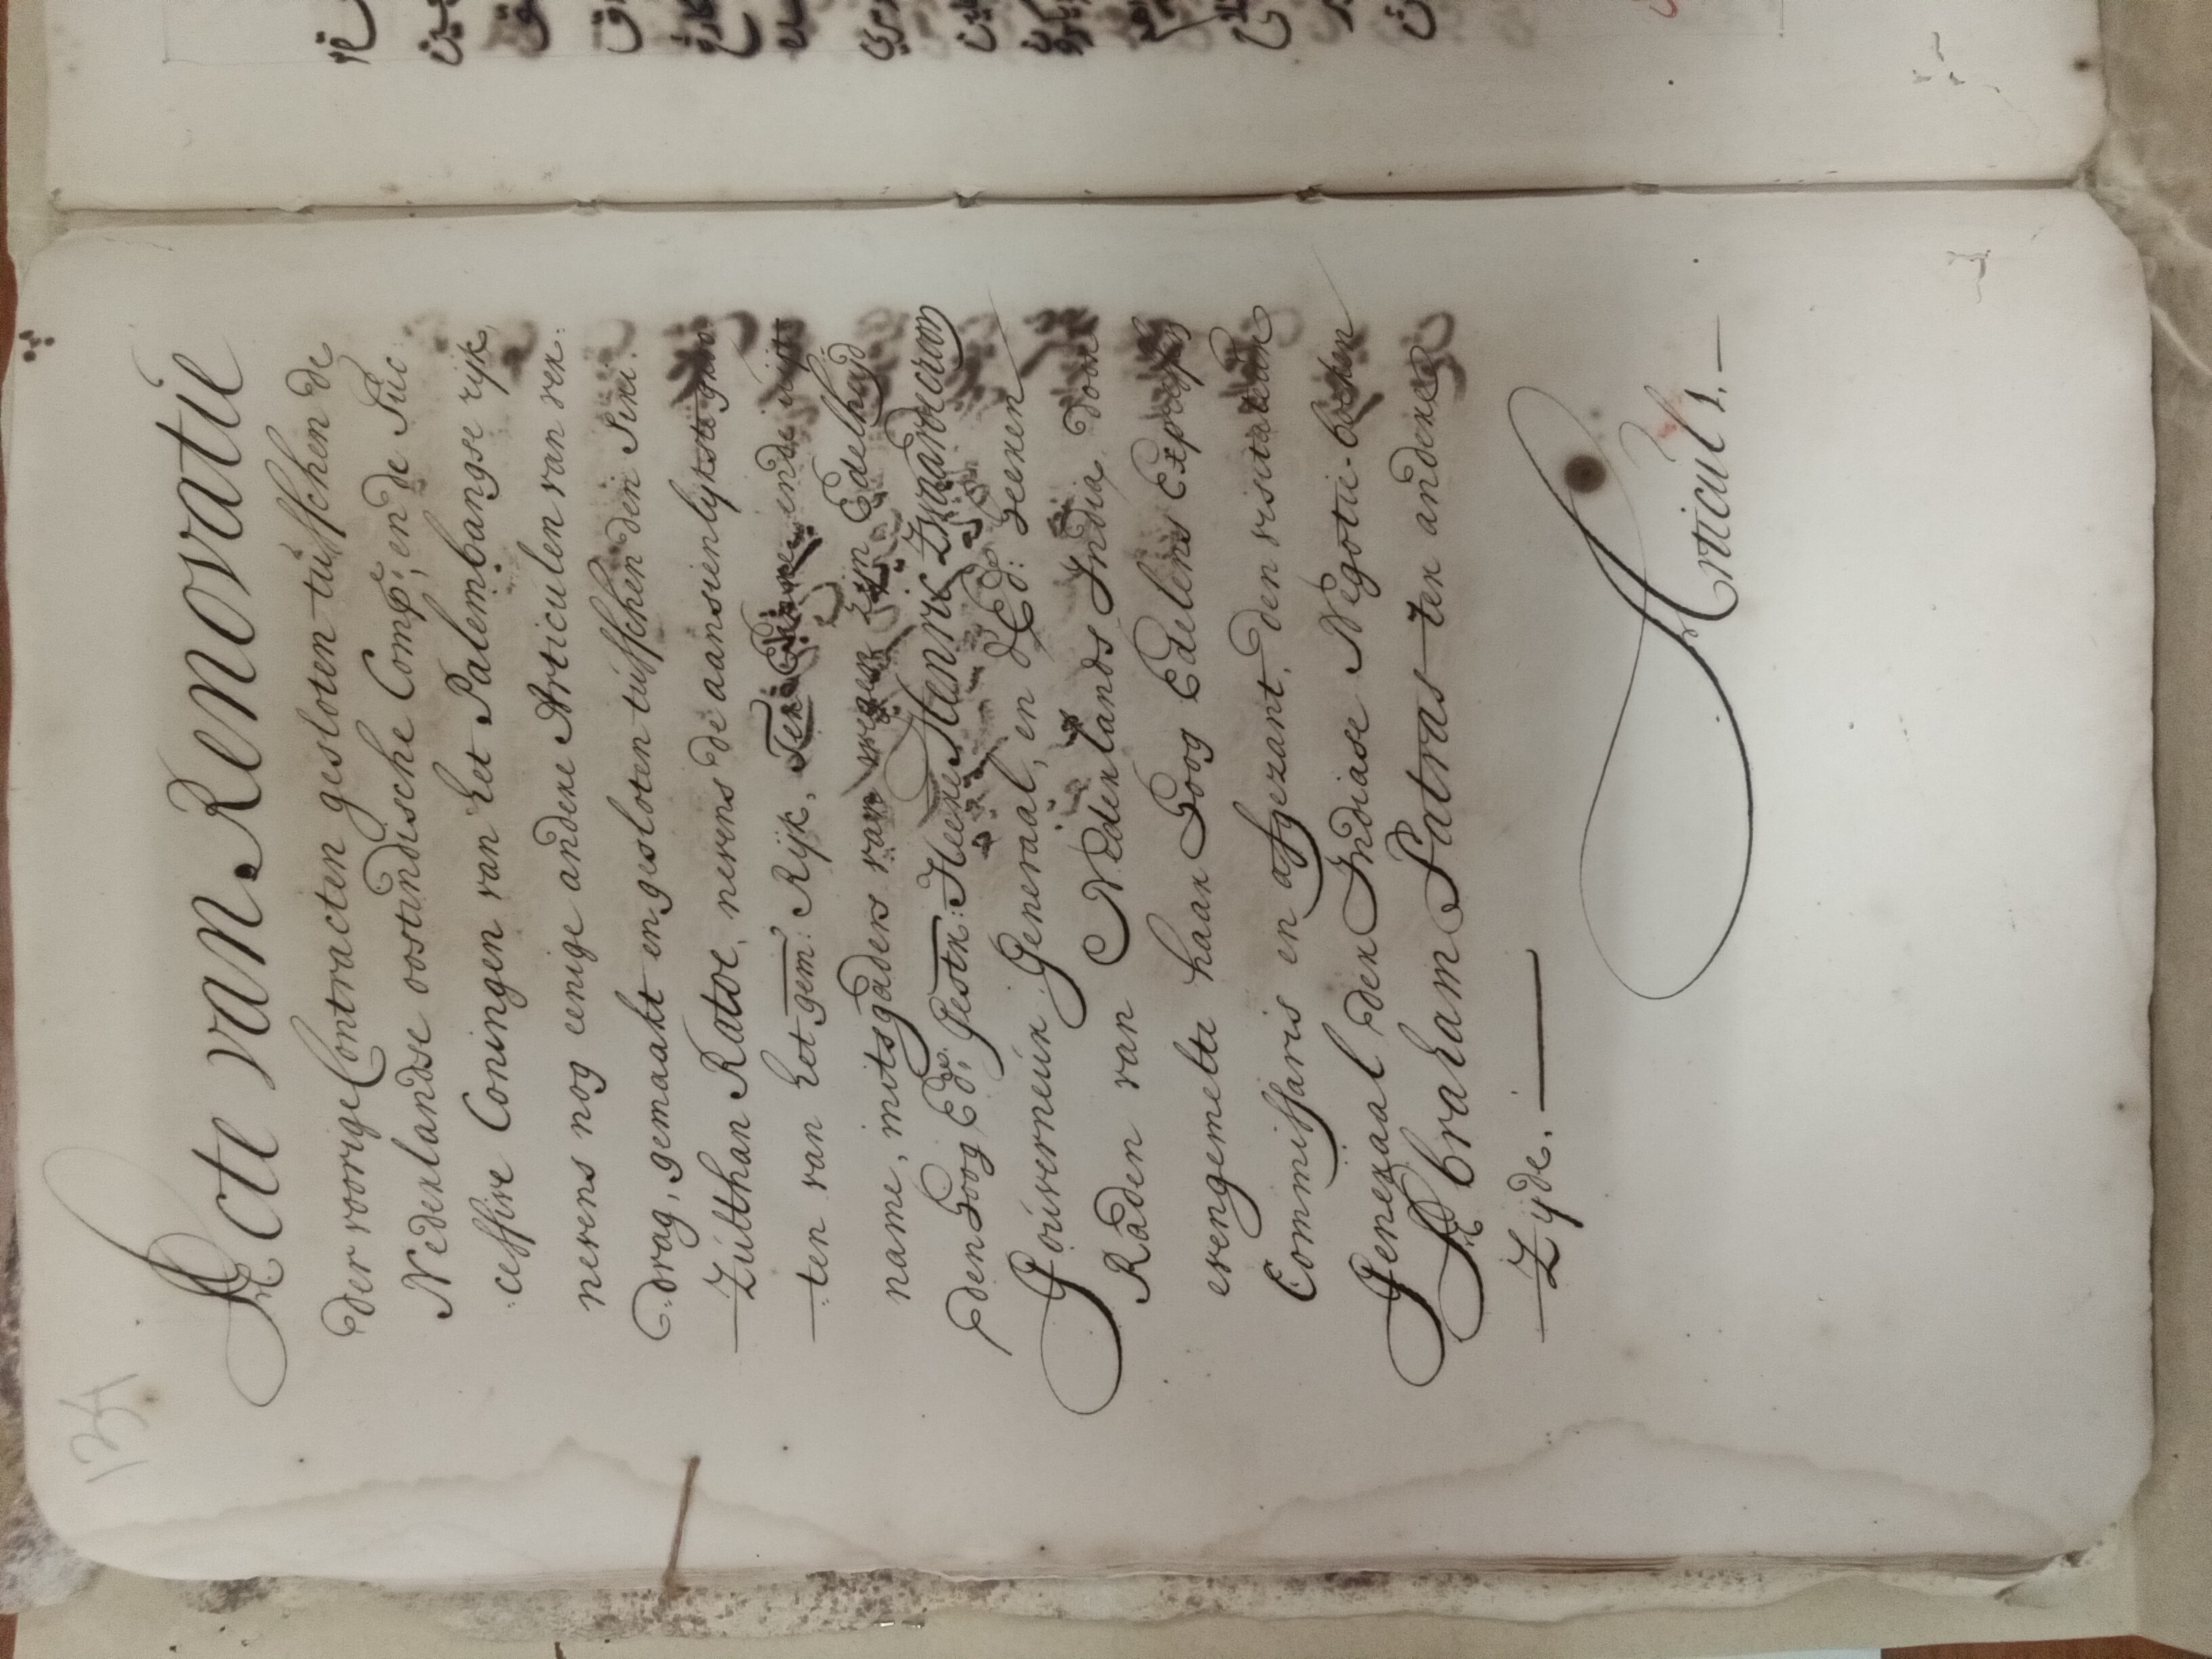 134
Acte van Renovatie
der voorige Contracten gesloten tússchen de
Nederlandse oostindische Comp:e, en de Súc:
:cessive Coningen van het Palembangse rijk,
nevens nog eenige andere Articulen van ver:
:drag, gemaakt en gesloten tússchen den Siri:
Zúlthan Ratoe, nevens de aansienlijkste groo:
:ten van het gem: Rijk, Ter Eenre, ende uijt
name, mitsgaders van wegen zijn Edelheijd
den Hoog Ed:e Gestr: Heere Henric Zwaardecroon
Goúverneúr Generaal, en d'Ed: heeren
Raden van Nederlands India, door
evengemelte haar Hoog Edelens Expressen
Commissaris en afgezant, den visitateur
Generaal der Indiase Negotie-boeken
Abraham Patras ter andere
Zijde.
Articul 1.